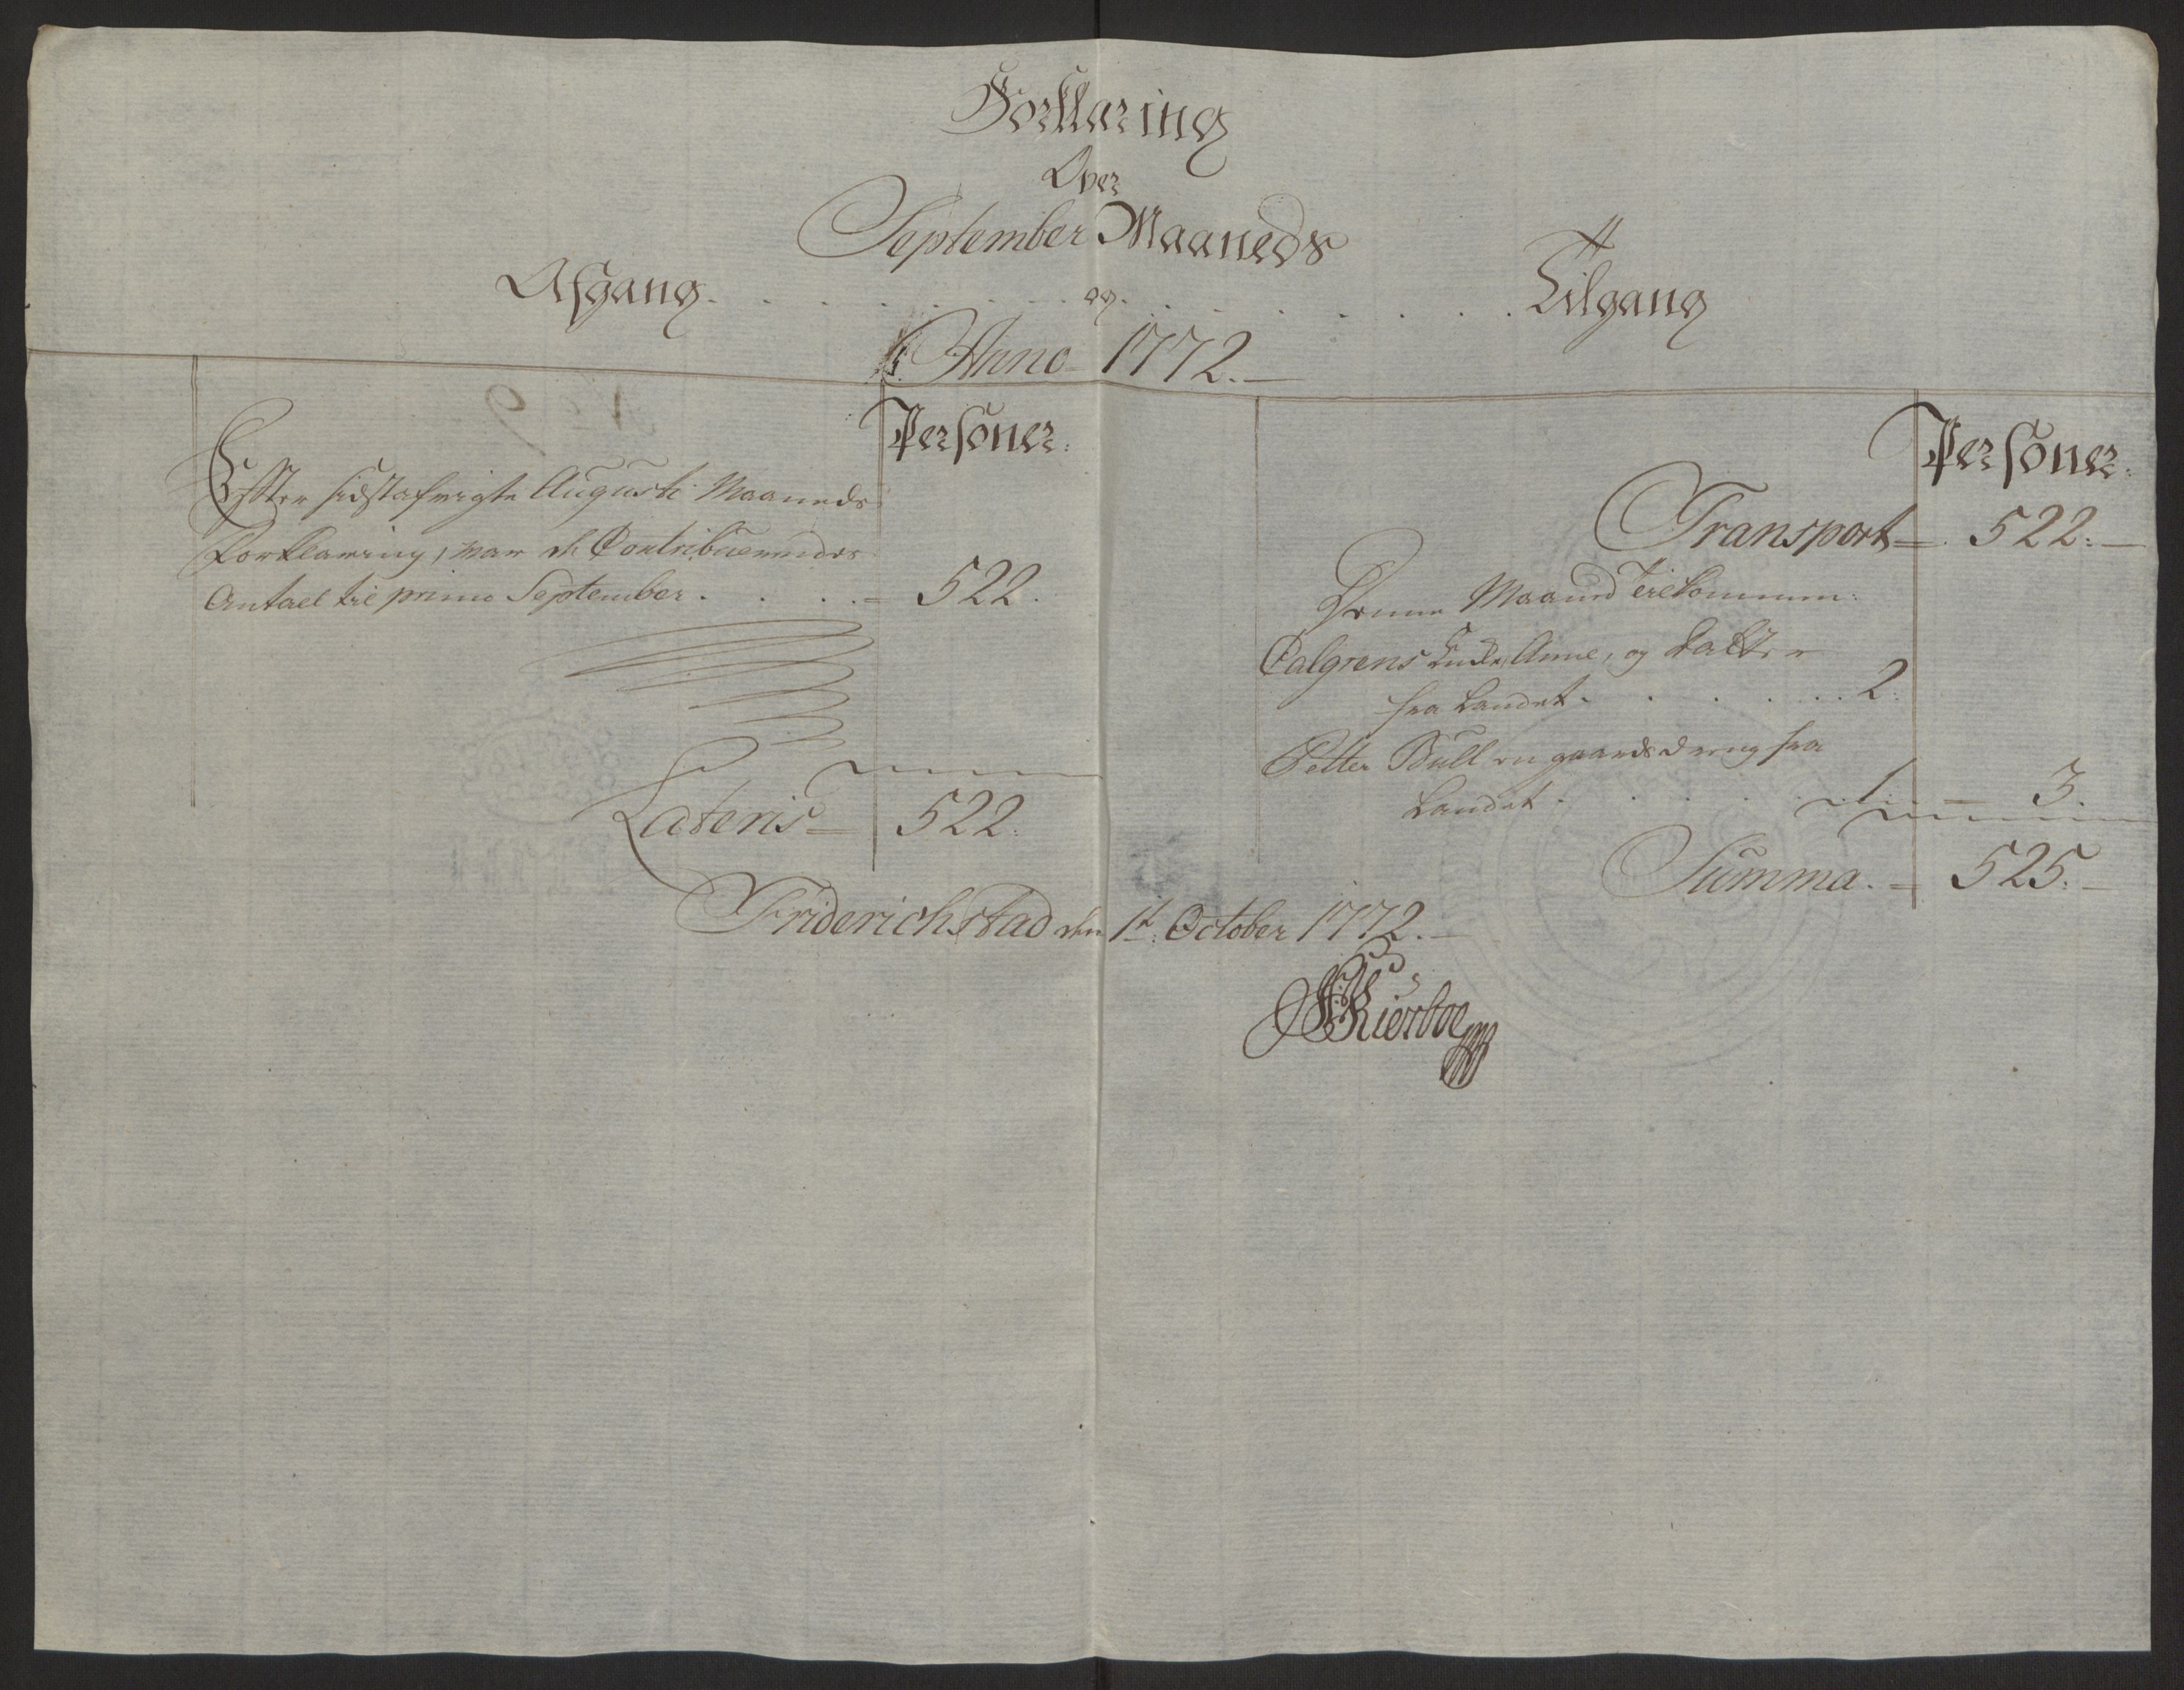 Forklaring
Over
September Maaneds
Afgang . . . . . . . og . . . . . . . Tilgang
Anno 1772.
Personer.
Effter sidstafvigte Augusti Maaneds
Forklaring, var de Contribuerendes
Antael til primo September . . . . = 522.
Lateris = 522.
Personer.
Transport = 522.
Denne Maaned tilkommen:
Calgrens Encke, Anne, og datter
fra Landet . . . . . . 2.
Petter Bull en gaardsdreng fra
Landet . . . . . . 1. = 3.
Summa. = 525.
Friderichstad den 1t. October 1772.
Kierboe